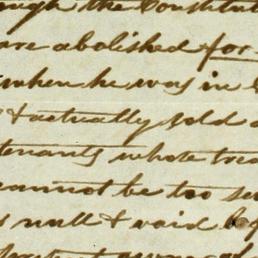 ough the Constitut
are abolished for
when he was in
& actually sold a
tenants whose trea
cannot be too se
null & void